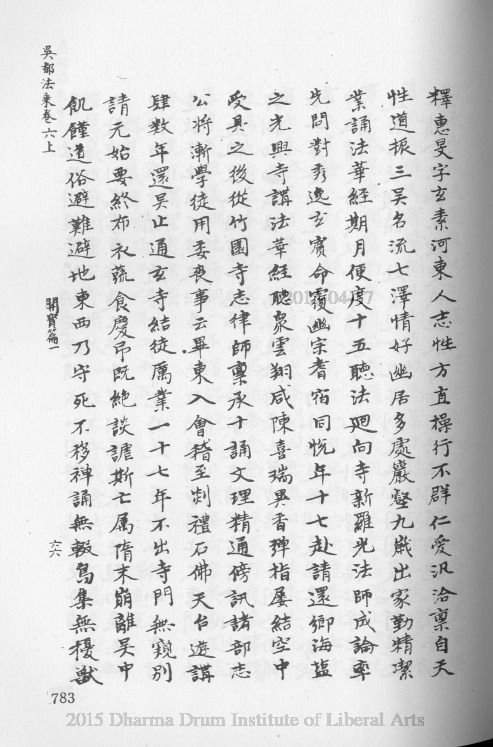 釋惠旻字玄素河東人志性方直操行不群仁愛汎洽稟自天
性道振三吳名流七澤情好幽居多處巖壑九歲出家勤精潔
業誦法華經期月便度十五聽法迴向寺新羅光法師成論率
先問對秀逸玄賓命覆幽宗耆宿同悅年十七赴請還鄉海鹽
之光興寺講法華經聽眾雲翔咸陳喜瑞異香彈指屢結空中
受具之後從竹園寺志律師稟承十誦文理精通傍訊諸部志
公將漸學徒用委喪事云畢東入會稽至剡禮石佛天台遊講
肆數年還吳止通玄寺結徒厲業一十七年不出寺門無窺別
請元始要終布衣蔬食慶弔既絕談謔斯亡屬隋末崩離吳中
飢饉道俗避難避地東西乃守死不移禪誦無輟鳥集無擾獸
吳都法乘卷六上
開寶篇一
六六
783
2015 Dharma Drum Institute of Liberal Arts